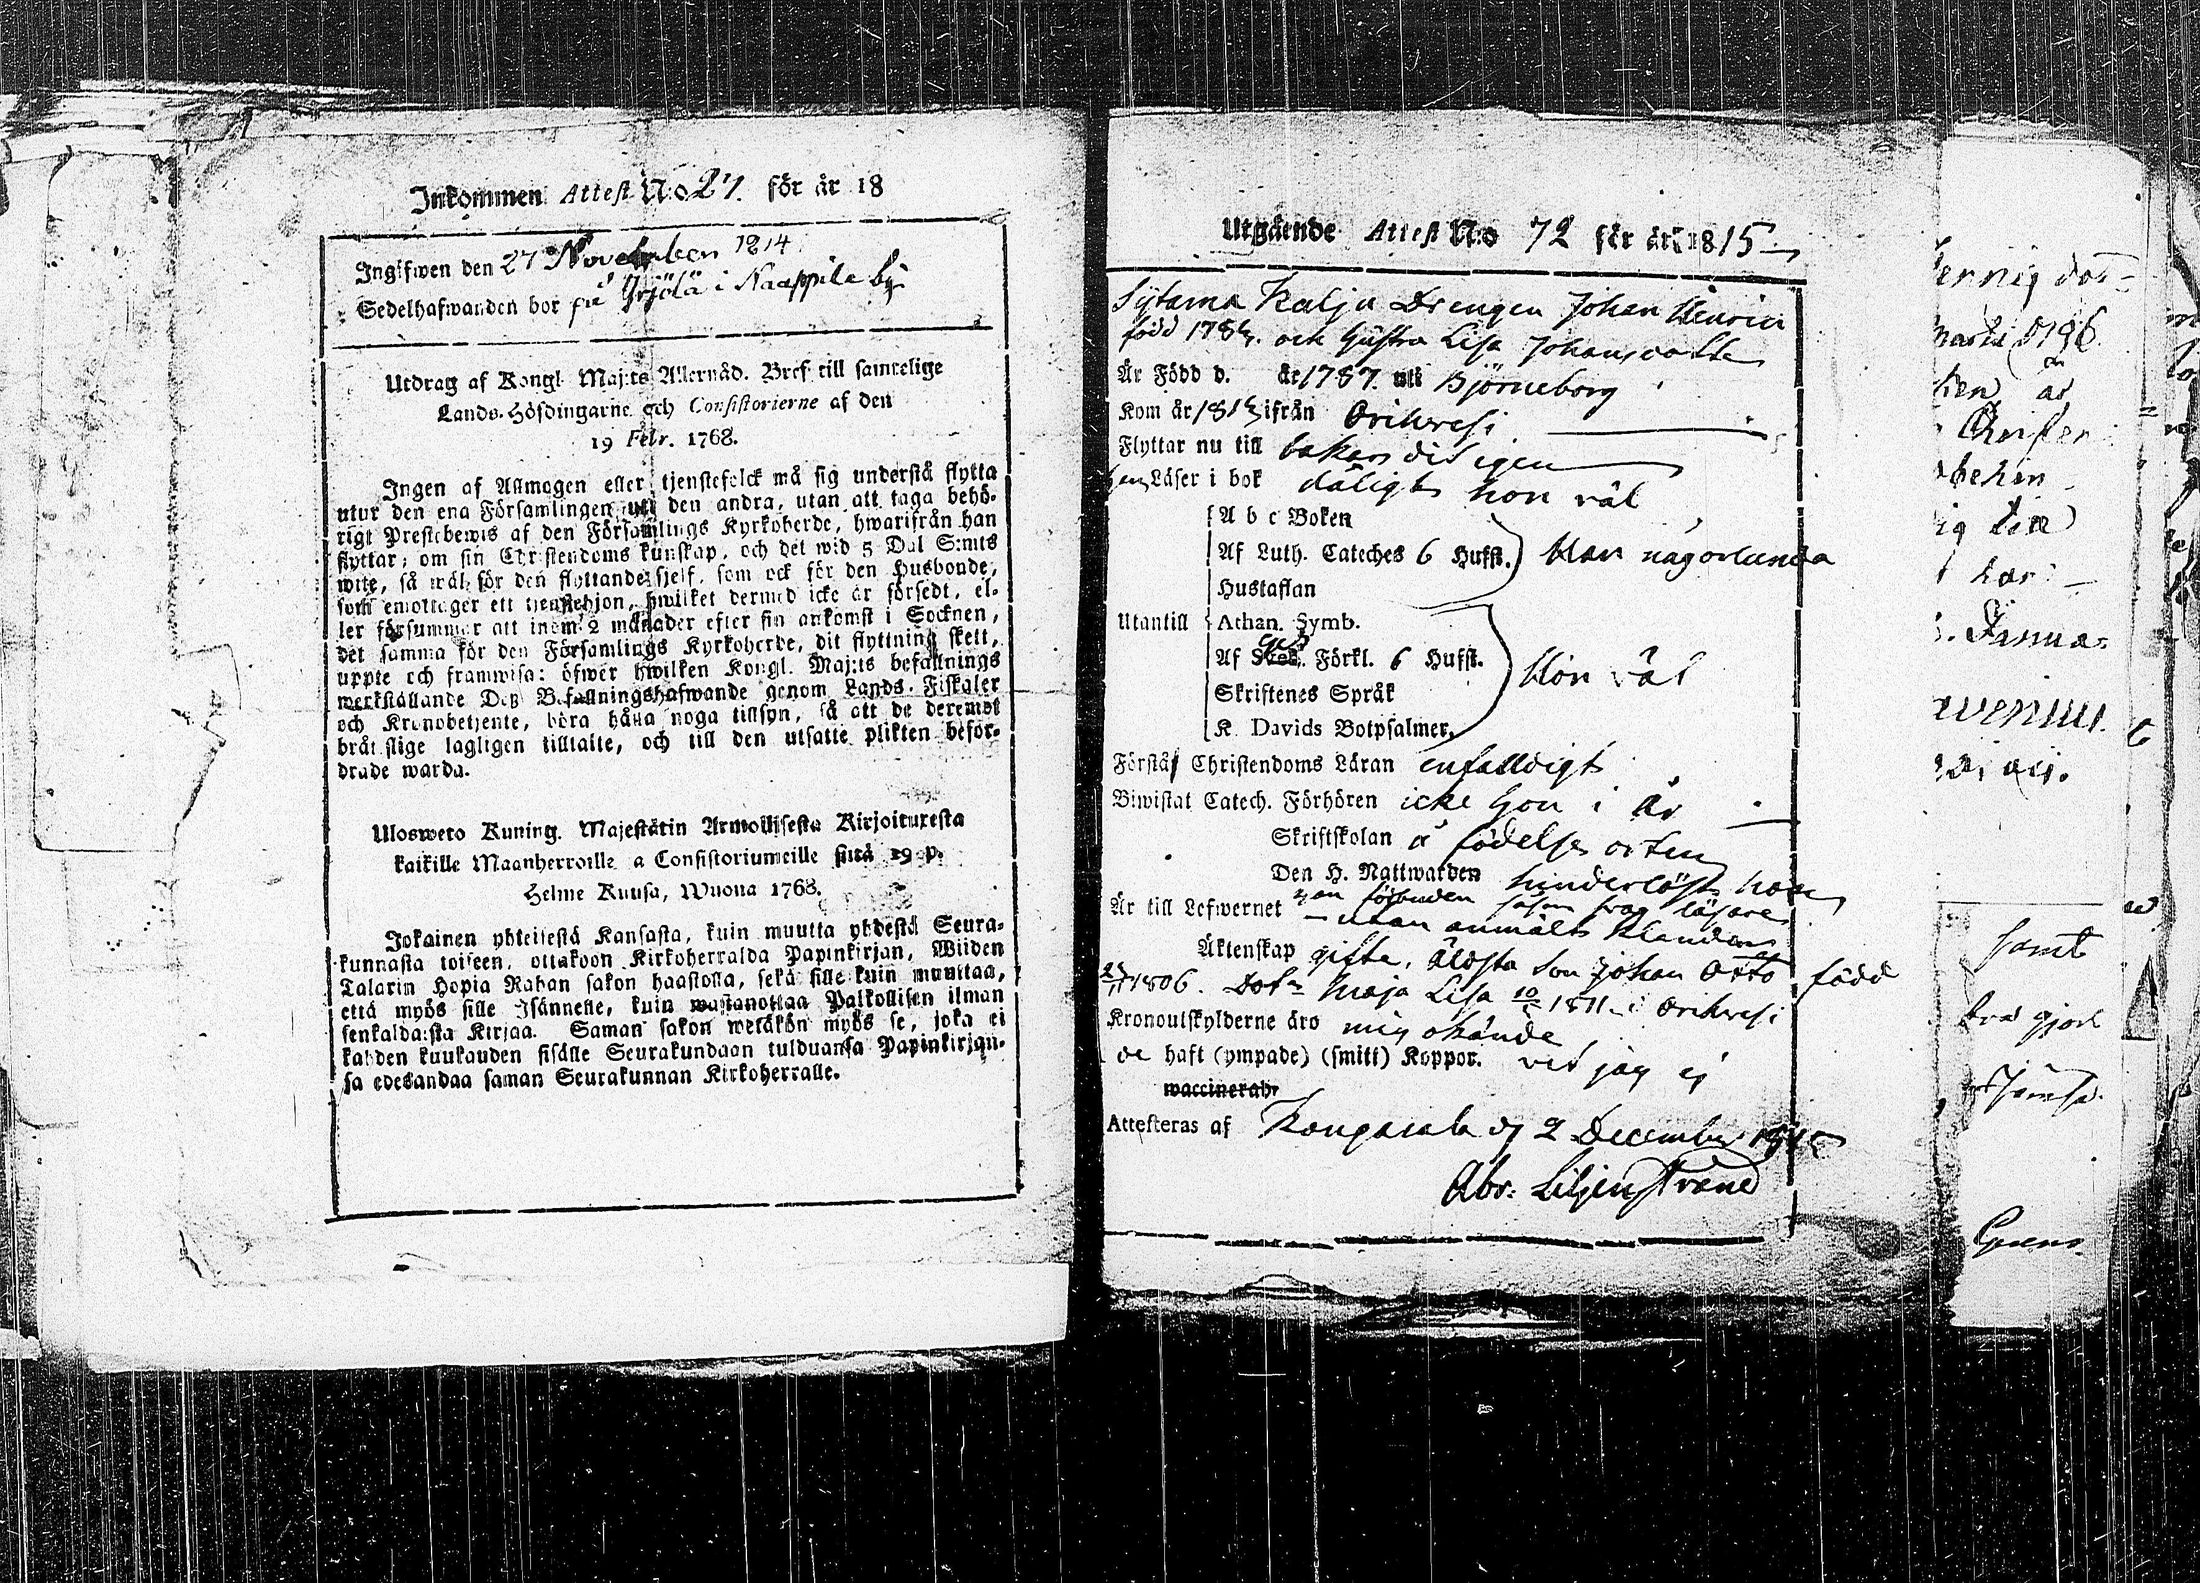 Inkommen Attest No 27. för år 18
Ingifwen den 27 November 1814
Sedelhafwanden bor på Yrjölä i Naappila by
Utdrag af Kongl. Maj:ts Allernåd. Bref till samtelige
Lands-Höfdingarne och Consistorierne af den
19 Febr. 1768.
Ingen af Allmogen eller tjenstefolck må sig understå flytta
utur den ena Församlingen uti den andra, utan att taga behö-
rigt Prestebewis af den Församlings Kyrkoherde, hwarifrån han
flyttar; om sin Christendoms kunskap, och det wid 5 Dal. S:mts
wite, så wäl för den flyttande sjelf, som ock för den Husbonde,
som emottager ett tjenstehjon, hwilket dermed icke är försedt, el-
ler försummar att inom 2 månader efter sin ankomst i Socknen,
det samma för den Församlings Kyrkoherde, dit flyttning skett,
uppte och framwisa: öfwer hwilken Kongl. Maj:ts befallnings
werkställande Deß Befallningshafwande genom Lands-Fiskaler
och Kronobetjente, böra hålla noga tillsyn, så att de deremot
bråtslige lagligen tilltalte, och till den utsatte plikten beför-
drade warda.
Ulosweto Kuning. Majestätin Armollisesta Kirjoituxesta
kaikille Maanherroille ja Consistoriumeille siitä 19 p.
Helme Kuusa, Wuona 1768.
Jokainen yhteisestä Kansasta, kuin muutta yhdestä Seura-
kunnasta toiseen, ottakoon Kirkoherralda Papinkirjan, Wiiden
Talarin Hopia Rahan sakon haastolla, sekä sille kuin muuttaa,
että myös sille Isännelle, kuin wastanottaa Palkollisen ilman
senkaldaista Kirjaa. Saman sakon wetäkön myös se, joka ei
kahden kuukauden sisälle Seurakundaan tulduansa Papinkirjan-
sa edesandaa saman Seurakunnan Kirkoherralle.
Utgående Attest No 72 för år 1815
Sytama Kalja Drengen Johan Henric
född 178 och Gustva Lisa Johansdotter
Är Född d. år 1787. uti Björneborg
Kom år 181 ifrån Orihvesi
Flyttar nu till bakas dit igen
Läser i bok dåligt hon väl
A b c Boken
Af Luth. Cateches 6 Hufst. Han någorlunda
Hustaflan
Utantill Athan. Symb.
Af Förkl. 6 Hufst. Hon väl
Skriftenes Språk
K. Davids Botpsalmer
Förstår Christendoms Läran enfalldigt
Biwistat Catech. Förhören icke hon i år
Skriftskolan å födelse orten
Den H. Nattwarden hinderlöst hon
han förbuden såsom läsare
Är till Lefwernet utan anmält klander
Äktenskap gifte, Äldsta Son Johan Otto född
1806. Dotr Maja Lisa 1811 i Orihvesi
Kronoutskylderne äro mig okände
de haft (ympade) (smitt) Koppor. vet jag ej
waccinerade
Attesteras af Kangasala d 2 December 1815
Abr: Liljenstrand
har
samt